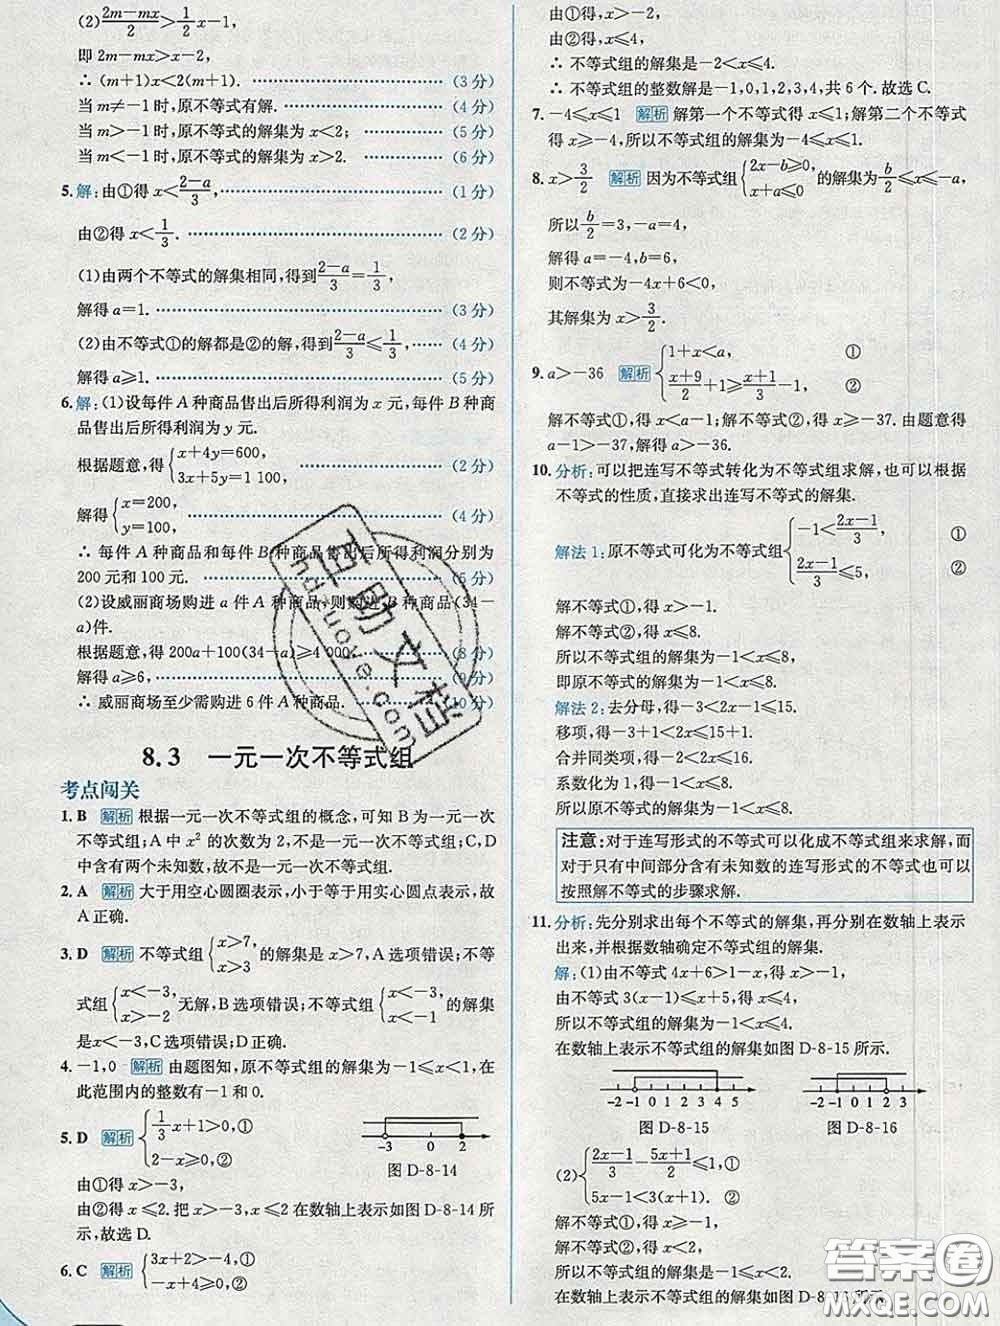 (2) (2m-mx)/2 > (1/2)x-1,
即 2m-mx>x-2,
∴ (m+1)x<2(m+1). (3分)
当 m≠-1时,原不等式有解. (4分)
当 m>-1时,原不等式的解集为 x<2; (5分)
当 m<-1时,原不等式的解集为 x>2. (6分)
5. 解:由①得 x< (2-a)/3, (1分)
由②得 x< 1/3. (2分)
(1)由两个不等式的解集相同,得到 (2-a)/3 = 1/3,
解得 a=1. (3分)
(2)由不等式①的解都是②的解,得到 (2-a)/3 ≤ 1/3, (4分)
解得 a≥1. (5分)
6. 解:(1)设每件 A 种商品售出后所得利润为 x 元,每件 B 种商
品售出后所得利润为 y 元.
根据题意,得 { x+4y=600,
3x+5y=1 100, (2分)
解得 { x=200,
y=100. (4分)
∴ 每件 A 种商品和每件 B 种商品售出后所得利润分别为
200元和100元. (5分)
(2)设威丽商场购进 a 件 A 种商品,则购进 B 种商品(34-
a)件.
根据题意,得 200a+100(34-a)≥4 000, (8分)
解得 a≥6, (9分)
∴ 威丽商场至少需购进 6 件 A 种商品. (10分)
8.3 一元一次不等式组
考点闯关
1. B 解析 根据一元一次不等式组的概念,可知 B 为一元一次
不等式组;A 中 x² 的次数为 2,不是一元一次不等式组;C、D
中含有两个未知数,故不是一元一次不等式组.
2. A 解析 大于用空心圆圈表示,小于等于用实心圆点表示,故
A 正确.
3. D 解析 不等式组 { x>7,
x>3 的解集是 x>7,A 选项错误;不等
式组 { x<-3,
x>-2 无解,B 选项错误;不等式组 { x<-3,
x<-1 的解集
是 x<-3,C 选项错误;D 正确.
4. -1,0 解析 由题图知,原不等式组的解集为-1≤x<1,在
此范围内的整数有-1和0.
5. D 解析 { (1/3)x+1>0,①
2-x≥0,②
-3 0 2
图 D-8-14
由①得 x>-3,
由②得 x≤2.把 x>-3,x≤2 在数轴上表示如图 D-8-14 所
示,故选 D.
6. C 解析 { 3x+2>-4,①
-x+4≥0,②
由①得,x>-2,
由②得,x≤4.
∴ 不等式组的解集是-2<x≤4.
∴ 不等式组的整数解是-1,0,1,2,3,4,共6个.故选C.
7. -4≤x≤1 解析 解第一个不等式得 x≤1;解第二个不等式
得 x≥-4,所以不等式组的解集为-4≤x≤1.
8. x> 3/2 解析 因为不等式组 { 2x-b≥0,
x+a≤0 的解集为 b/2 ≤x≤-a,
所以 b/2 =3,-a=4,
解得 a=-4,b=6,
则不等式为-4x+6<0,
其解集为 x> 3/2.
9. a>-36 解析 { 1+x<a, ①
(x+9)/2 +1≥ (x+1)/3 -1, ②
解不等式①,得 x<a-1;解不等式②,得 x≥-37.由题意得
a-1>-37,解得 a>-36.
10. 分析:可以把连写不等式转化为不等式组求解,也可以根据
不等式的性质,直接求出连写不等式的解集.
解法 1:原不等式可化为不等式组 { -1< (2x-1)/3, ①
(2x-1)/3 ≤5, ②
解不等式①,得 x>-1.
解不等式②,得 x≤8.
所以不等式组的解集为-1<x≤8,
即原不等式的解集为-1<x≤8.
解法 2:去分母,得-3<2x-1≤15.
移项,得-3+1<2x≤15+1.
合并同类项,得-2<2x≤16.
系数化为1,得-1<x≤8.
所以原不等式的解集为-1<x≤8.
注意:对于连写形式的不等式可以化成不等式组来求解,而
对于只有中间部分含有未知数的连写形式的不等式也可以
按照解不等式的步骤求解.
11. 分析:先分别求出每个不等式的解集,再分别在数轴上表示
出来,并根据数轴确定不等式组的解集.
解:(1)由不等式 4x+6>1-x,得 x>-1,
由不等式 3(x-1)≤x+5,得 x≤4,
所以不等式组的解集为-1<x≤4.
在数轴上表示不等式组的解集如图 D-8-15 所示.
-2 -1 0 1 2 3 4 5
图 D-8-15
-2 -1 0 1 2 3
图 D-8-16
(2) { (2x-1)/3 - (5x+1)/2 ≤1,①
5x-1<3(x+1). ②
解不等式①,得 x≥-1,
解不等式②,得 x<2,
所以不等式组的解集为-1≤x<2.
在数轴上表示不等式组的解集如图 D-8-16 所示
百助文档
hdzuoye.com
答案圈
MXQE.COM